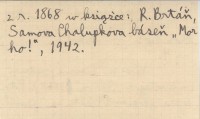 z r. 1868 w książce: R. Brtáň,
Samova Chalupkova báseň „Mor
ho!", 1942.